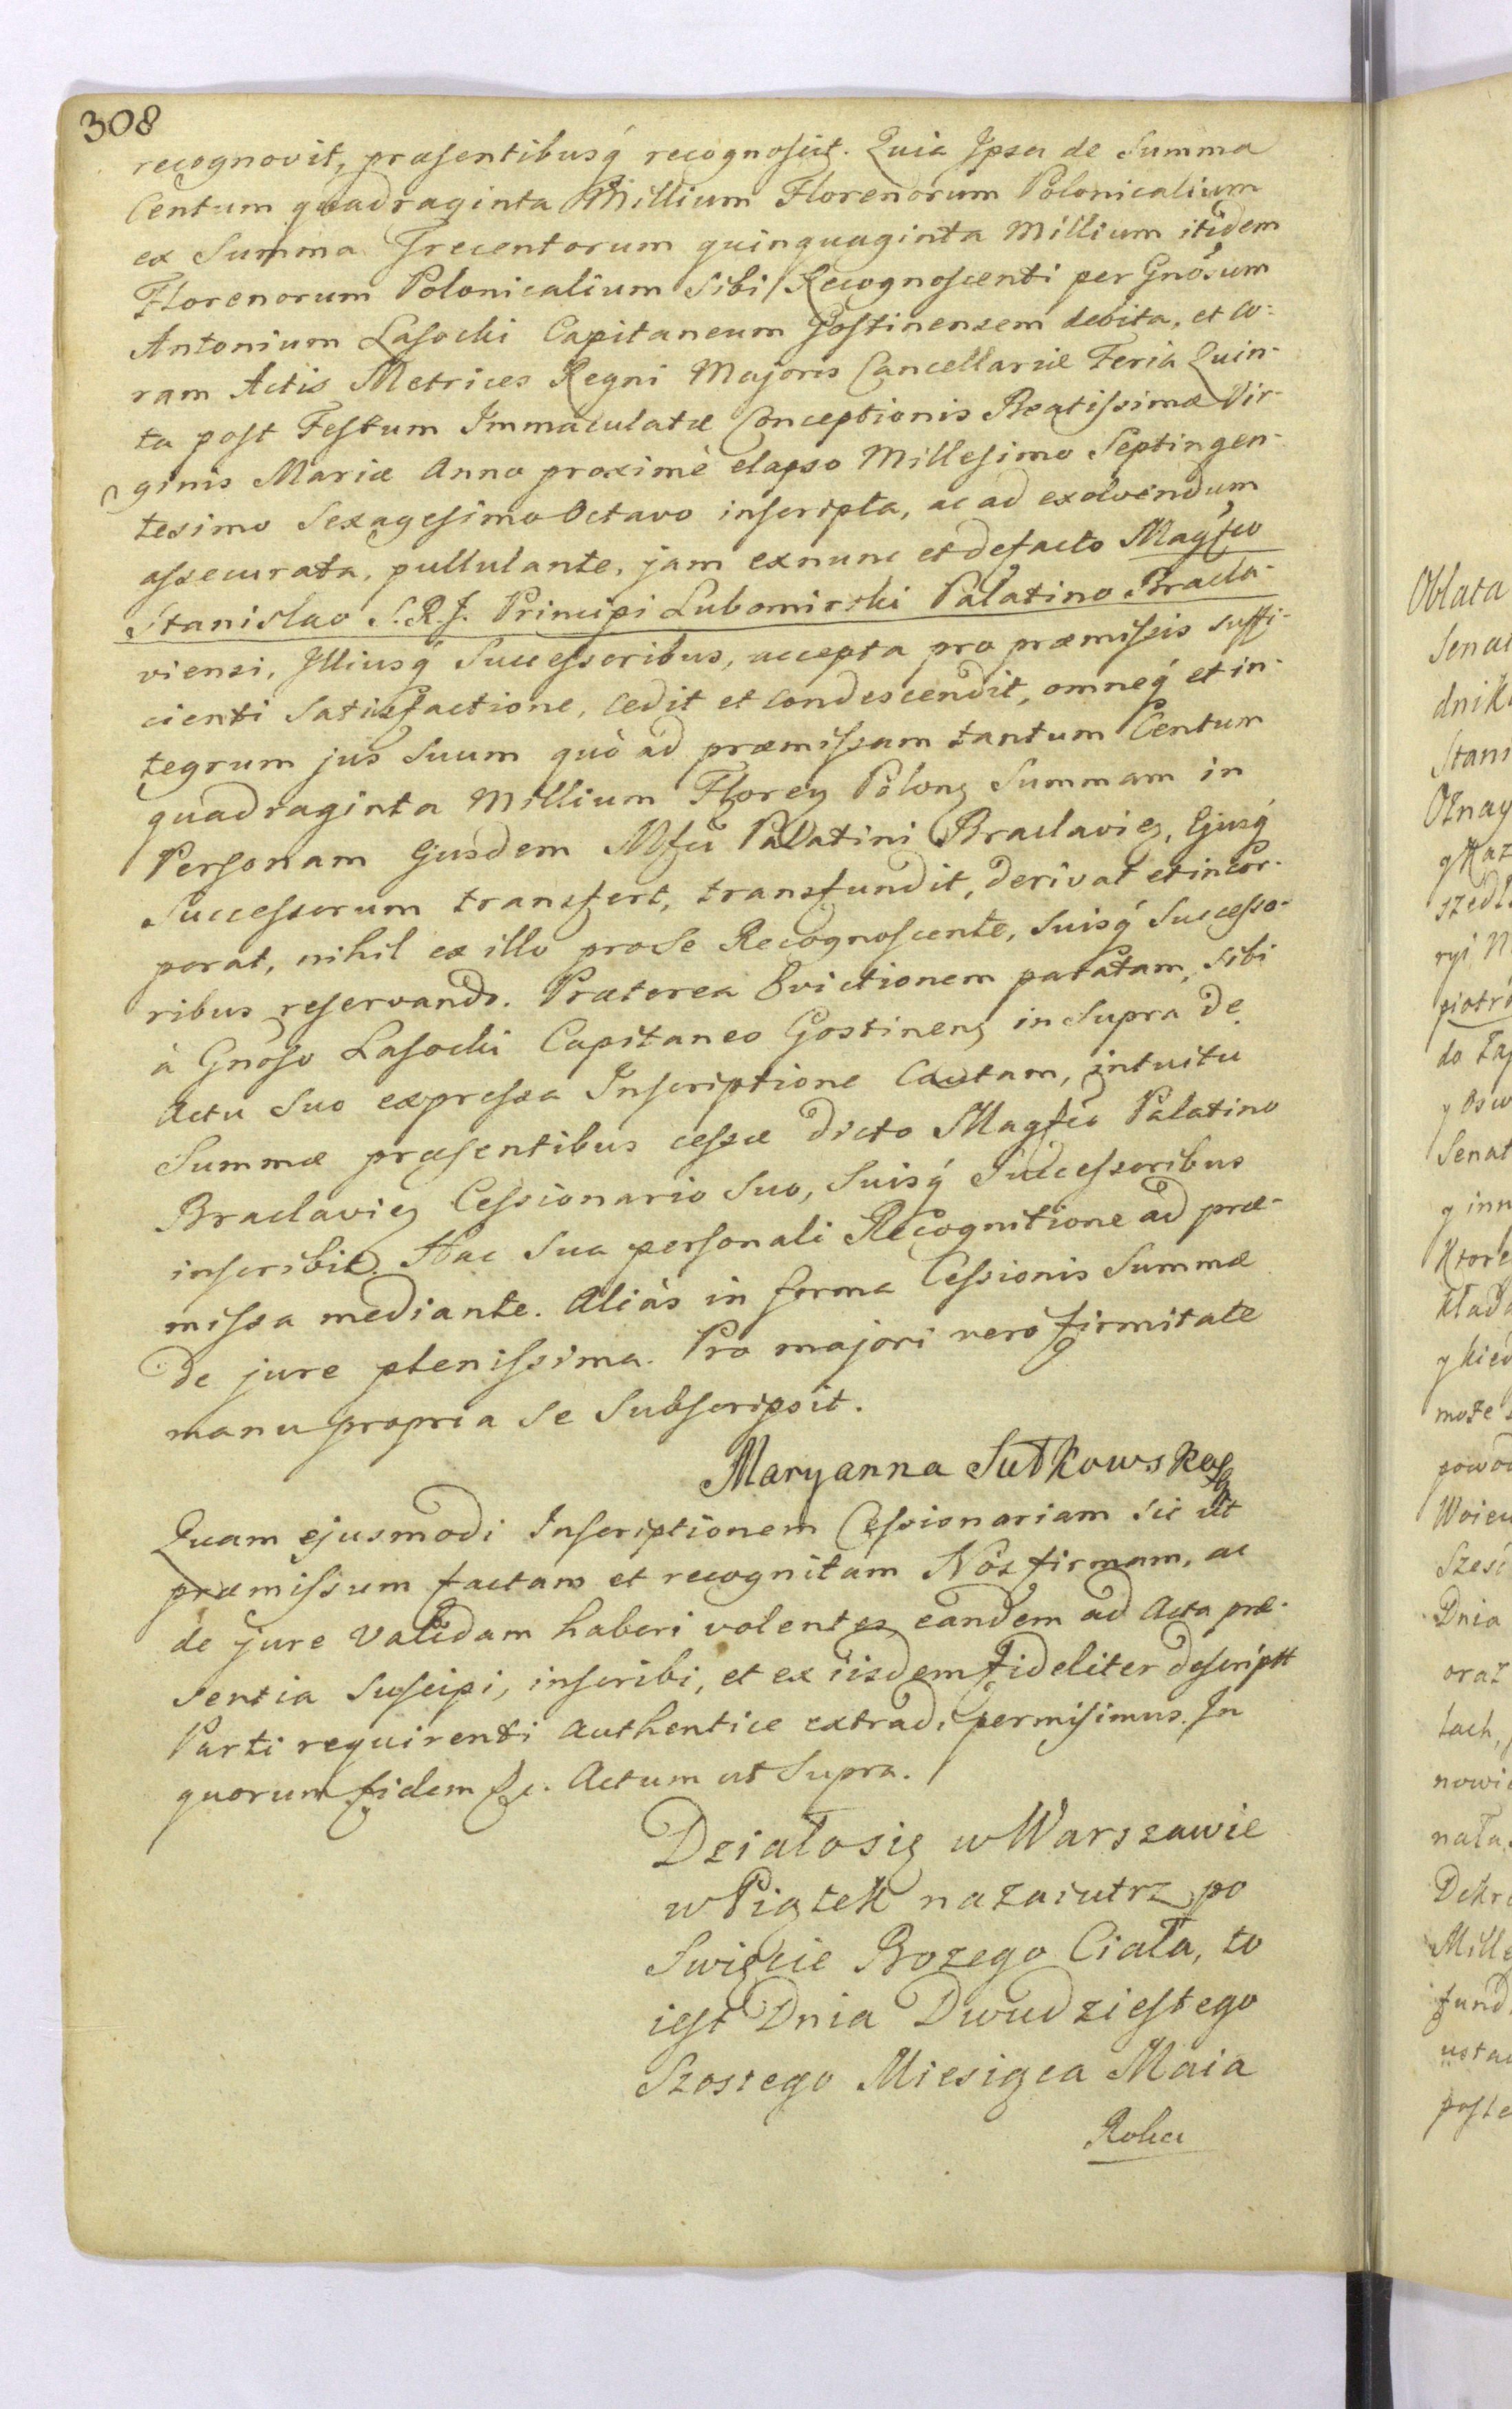 308
recognovit, præsentibusq́ recognoscit. Quia Ipsa de Summa
Centum quadraginta Millium Florenorum Polonicalium
ex Summa Trecentorum quinquaginta Millium itidem
Florenorum Polonicalium Sibi Recognoscenti per Gnosum
Antonium Lasocki Capitaneum Gostinensem debita, et Co-
ram Actis Metrices Regni Majoris Cancellariæ Feria Quin-
ta post Festum Immaculatæ Conceptionis Beatissimæ Vir-
ginis Mariæ Anno proximè elapso Millesimo Septingen-
tesimo Sexagesimo Octavo inscripta, ac ad exolvendum
assecurata, pullulante, jam exnunc et defacto Magfco
Stanislao S.R.J. Principi Lubomirski Palatino Bracla-
viensi, Illiusq́ Successoribus, accepta pro præmissis suffi-
cienti Satisfactione, cedit et condescendit, omneq́ et in-
tegrum jus Suum quò ad præmissam tantum Centum
quadraginta Millium Floren Polon Summam in
Personam Ejusdem Mfci Palatini Braclavien, Ejusq́
Successorum transfert, transfundit, derivat et incor-
porat, nihil ex illo pro Se Recognoscente, Suisq́ Successo-
ribus reservando. Præterea Evictionem paratam, sibi
à Gnoso Lasocki Capitaneo Gostinen in Supra de
Actu Suo expressa Inscriptione Cautam, intuitu
Summæ præsentibus cessæ dicto Magfco Palatino
Braclavien Cessionario Suo, Suisq́ Successoribus
inscribit. Hac Sua personali Recognitione ad præ-
missa mediante. Aliàs in forma Cessionis Summæ
de jure plenissima. Pro majori vero firmitate
manu propria Se Subscripsit.
Maryanna Sutkowska
Quam ejusmodi Inscriptionem Cessionariam sic ut
præmissum factam et recognitam Nos firmam, ac
de jure Validam haberi volentes, eandem ad Acta præ-
sentia Suscipi, inscribi, et ex iisdem fideliter descriptt
Parti requirenti Authentice extradi permisimus. In
quorum fidem &c. Actum ut Supra.
Działosię w Warszawie
w Piątek nazaiutrz po
Swięcie Bozego Ciała, to
iest Dnia Dwudziestego
Szostego Miesiąca Maia
Roku
Oblata
Senat
dnik
Stani
Oznay
y Kaz
szedł
ryi
piotr
do
y Osw
Senat
y inn
Ktore
kłada
y kied
może
powod
Woiew
Szesc
Dnia
oraz
tach,
nowi
nała
Dekr
Mille
fund
usta
poste